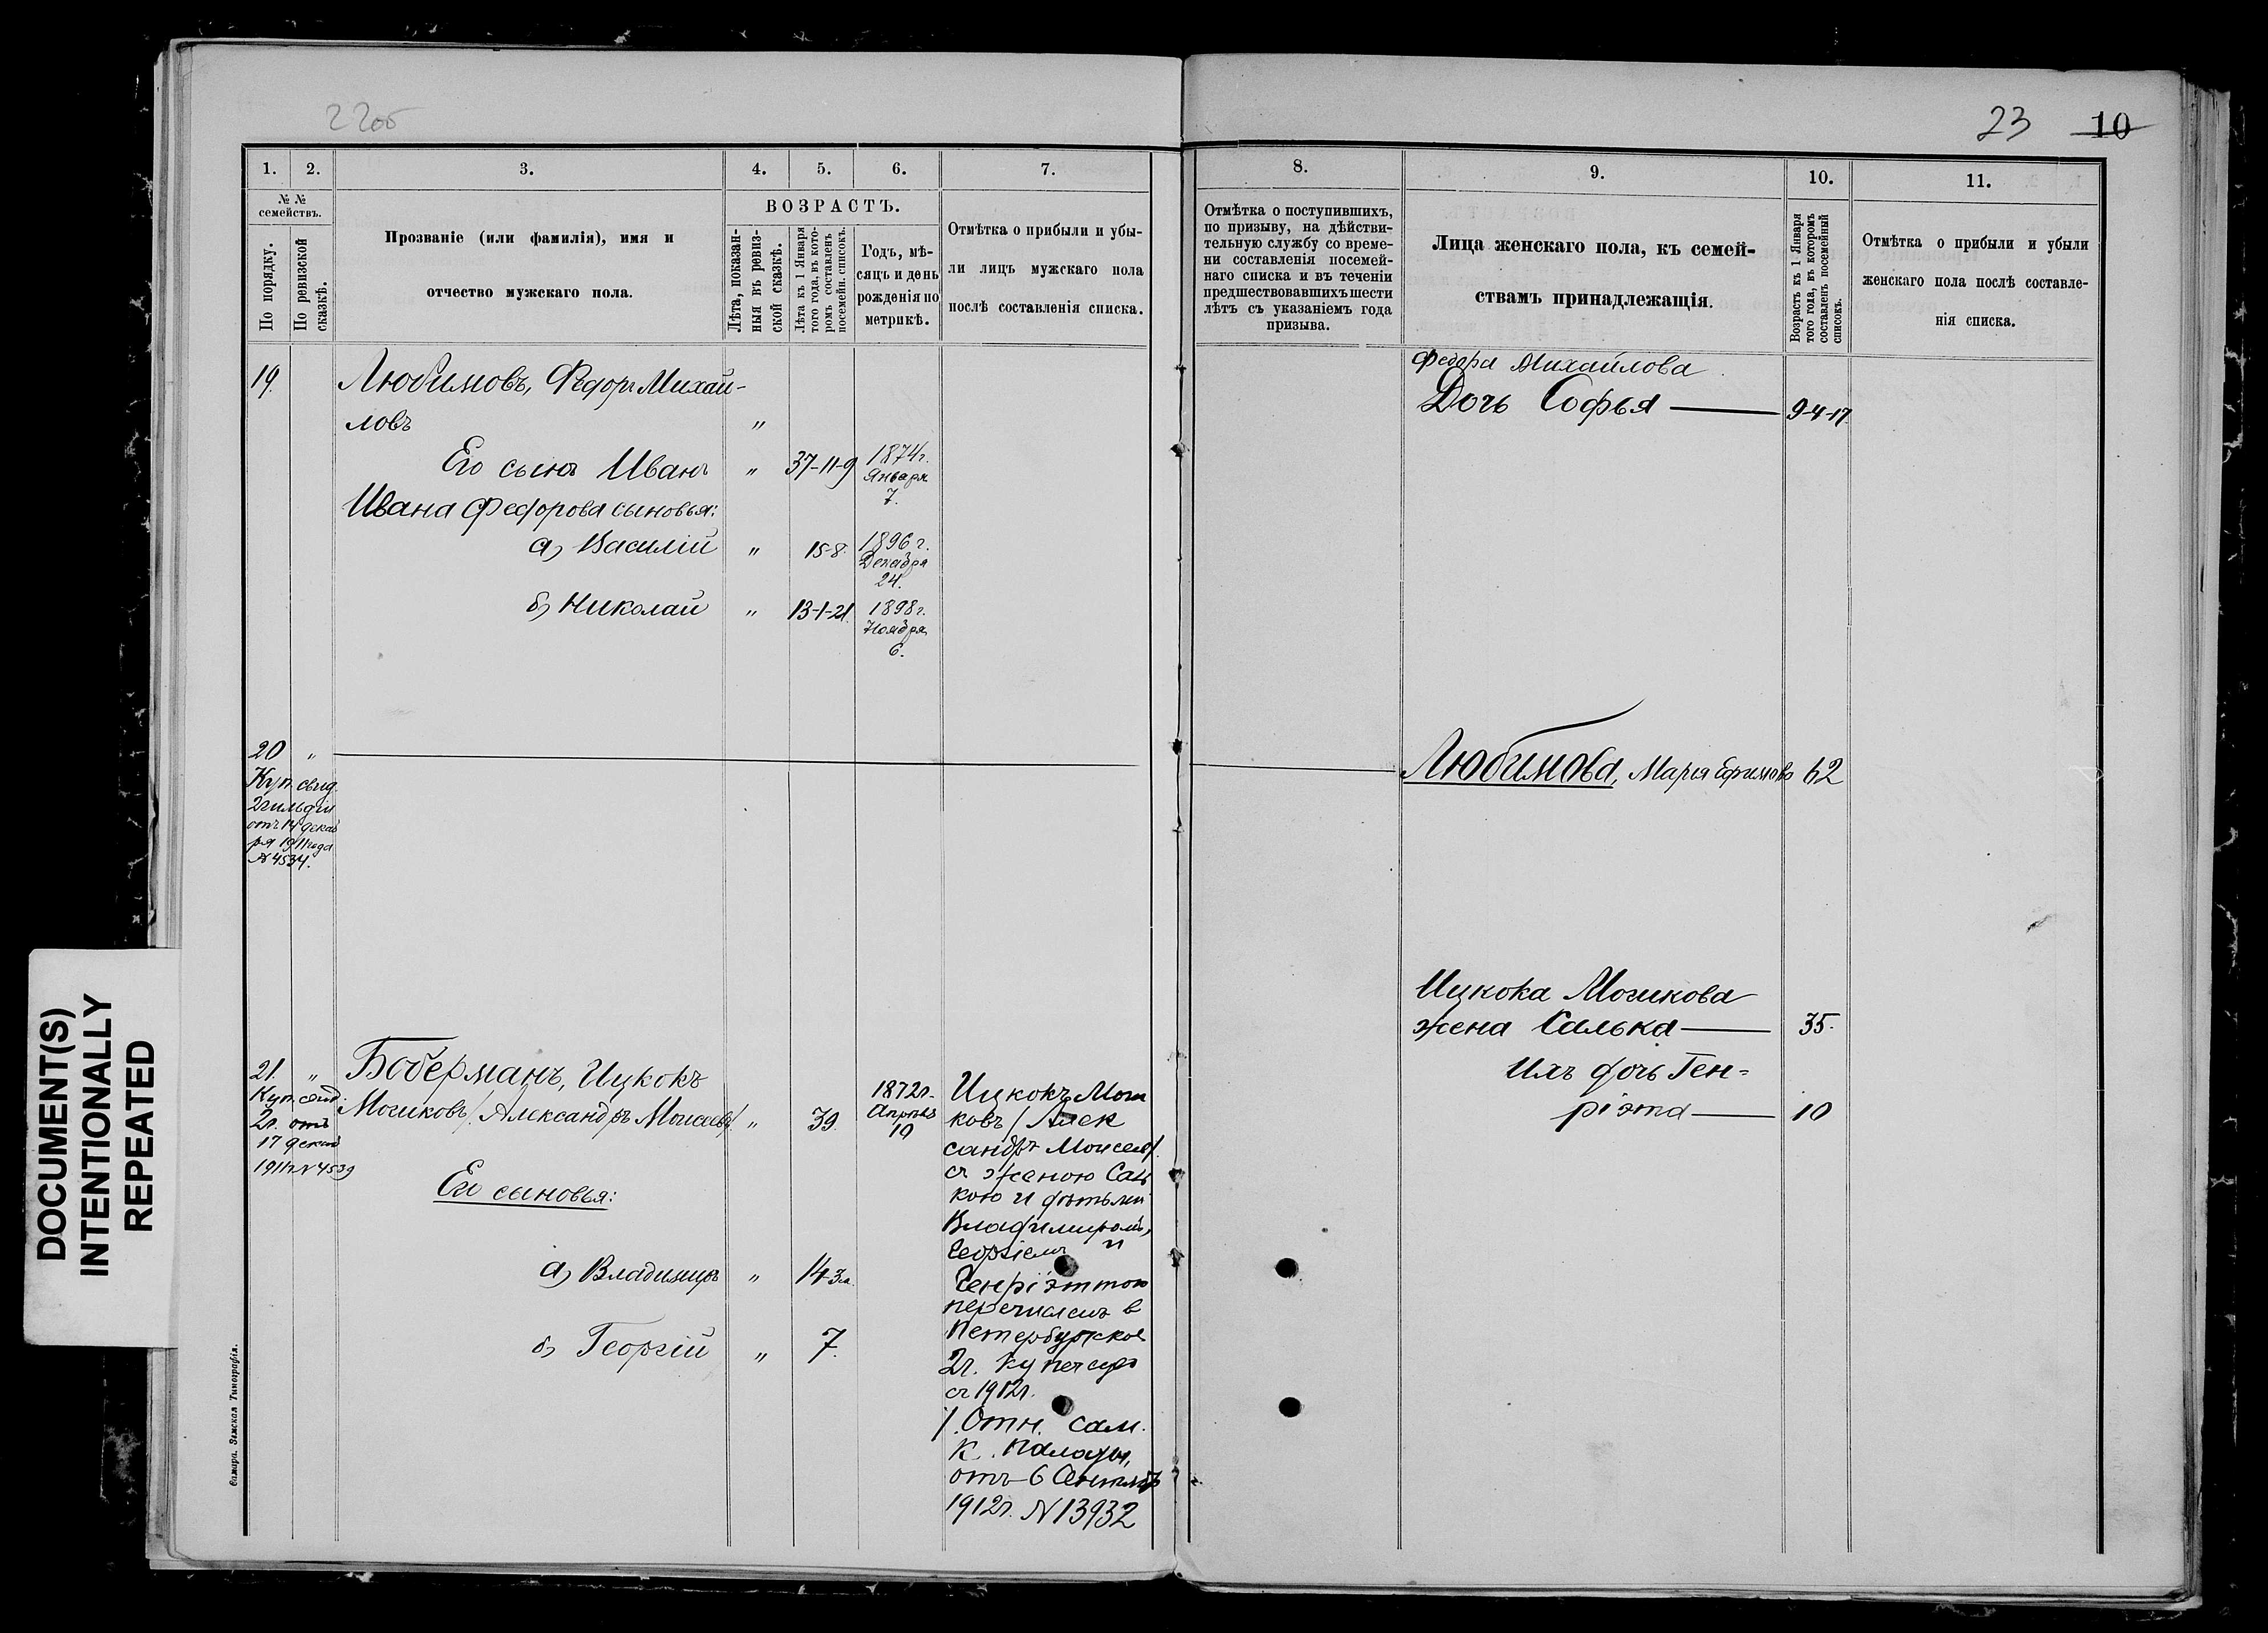 22об
23 10
1. 2. 3. 4. 5. 6. 7.
№ №
семействъ.
По порядку.
По ревизской
сказкѣ.
Прозваніе (или фамилія), имя и
отчество мужскаго пола.
ВОЗРАСТЪ.
Лѣта, показан-
ныя въ ревиз-
ской сказкѣ.
Лѣта къ 1 Января
того года, въ кото-
ромъ составленъ
посемейн. списокъ.
Годъ, мѣ-
сяцъ и день
рожденія по
метрикѣ.
Отмѣтка о прибыли и убы-
ли лицъ мужскаго пола
послѣ составленія списка.
19. Любимовъ, Федоръ Михай-
ловъ "
Его сынъ Иванъ " 37-11-9 1874г.
Января
7.
Ивана Федорова сыновья:
а) Василій " 15-8. 1896 г.
Декабря
24.
б) Николай " 13-1-21. 1898 г.
Ноября
6.
20 "
Куп. свид.
2 гильдіи
отъ 14 декаб
ря 1911 года
№ 4534.
21. "
Куп. свид.
2г. отъ
17 декаб
1911г. № 4539
Боберманъ, Ицкокъ
Мошковъ /Александръ Моисеевъ/ " 39. 1872г.
Апрѣля
19
Его сыновья:
а) Владимиръ " 14
б) Георгій " 7.
Ицкокъ Мош
ковъ /Алек
сандръ Моисеев/
съ женою Саль
кою и дѣтьми
Владимиромъ,
Георгіемъ и
Генріэттою
перечисленъ в
Петербургское
2г. купечест
съ 1912г.
/. Отн. Сам.
К. Палаты,
отъ 6 Сентябр
1912г. № 13932
Самара. Земская Типографія.
8. 9. 10. 11.
Отмѣтка о поступившихъ,
по призыву, на дѣйстви-
тельную службу со време-
ни составленія посемей-
наго списка и въ теченіи
предшествовавшихъ шести
лѣтъ съ указаніемъ года
призыва.
Лица женскаго пола, къ семей-
ствамъ принадлежащія.
Возрастъ къ 1 Января
того года, въ которомъ
составленъ посемейный
списокъ.
Отмѣтка о прибыли и убыли
женскаго пола послѣ составле-
нія списка.
Федора Михайлова
Дочь Софья 9-4-17.
Любимова, Марія Ефимова 62
Ицкока Мошкова
жена Салька 35.
Ихъ дочь Ген-
ріэта 10
DOCUMENT(S)
INTENTIONALLY
REPEATED